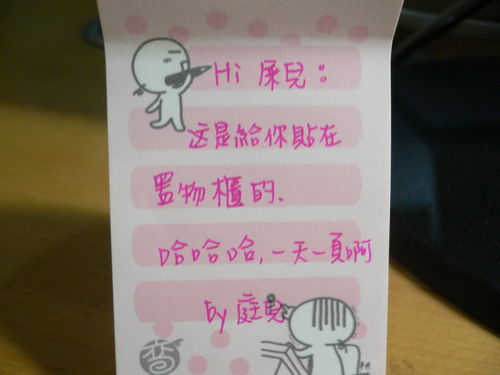 Hi 屎兒:
这是給你貼在
置物櫃的.
哈哈哈,一天一頁啊
by 庭兒
香